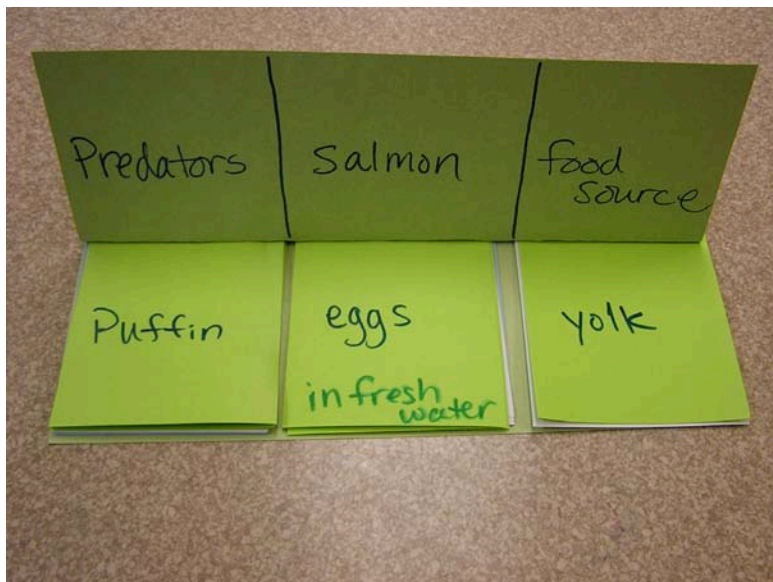 Predators
Salmon
food
source
Puffin
eggs
in fresh
water
yolk